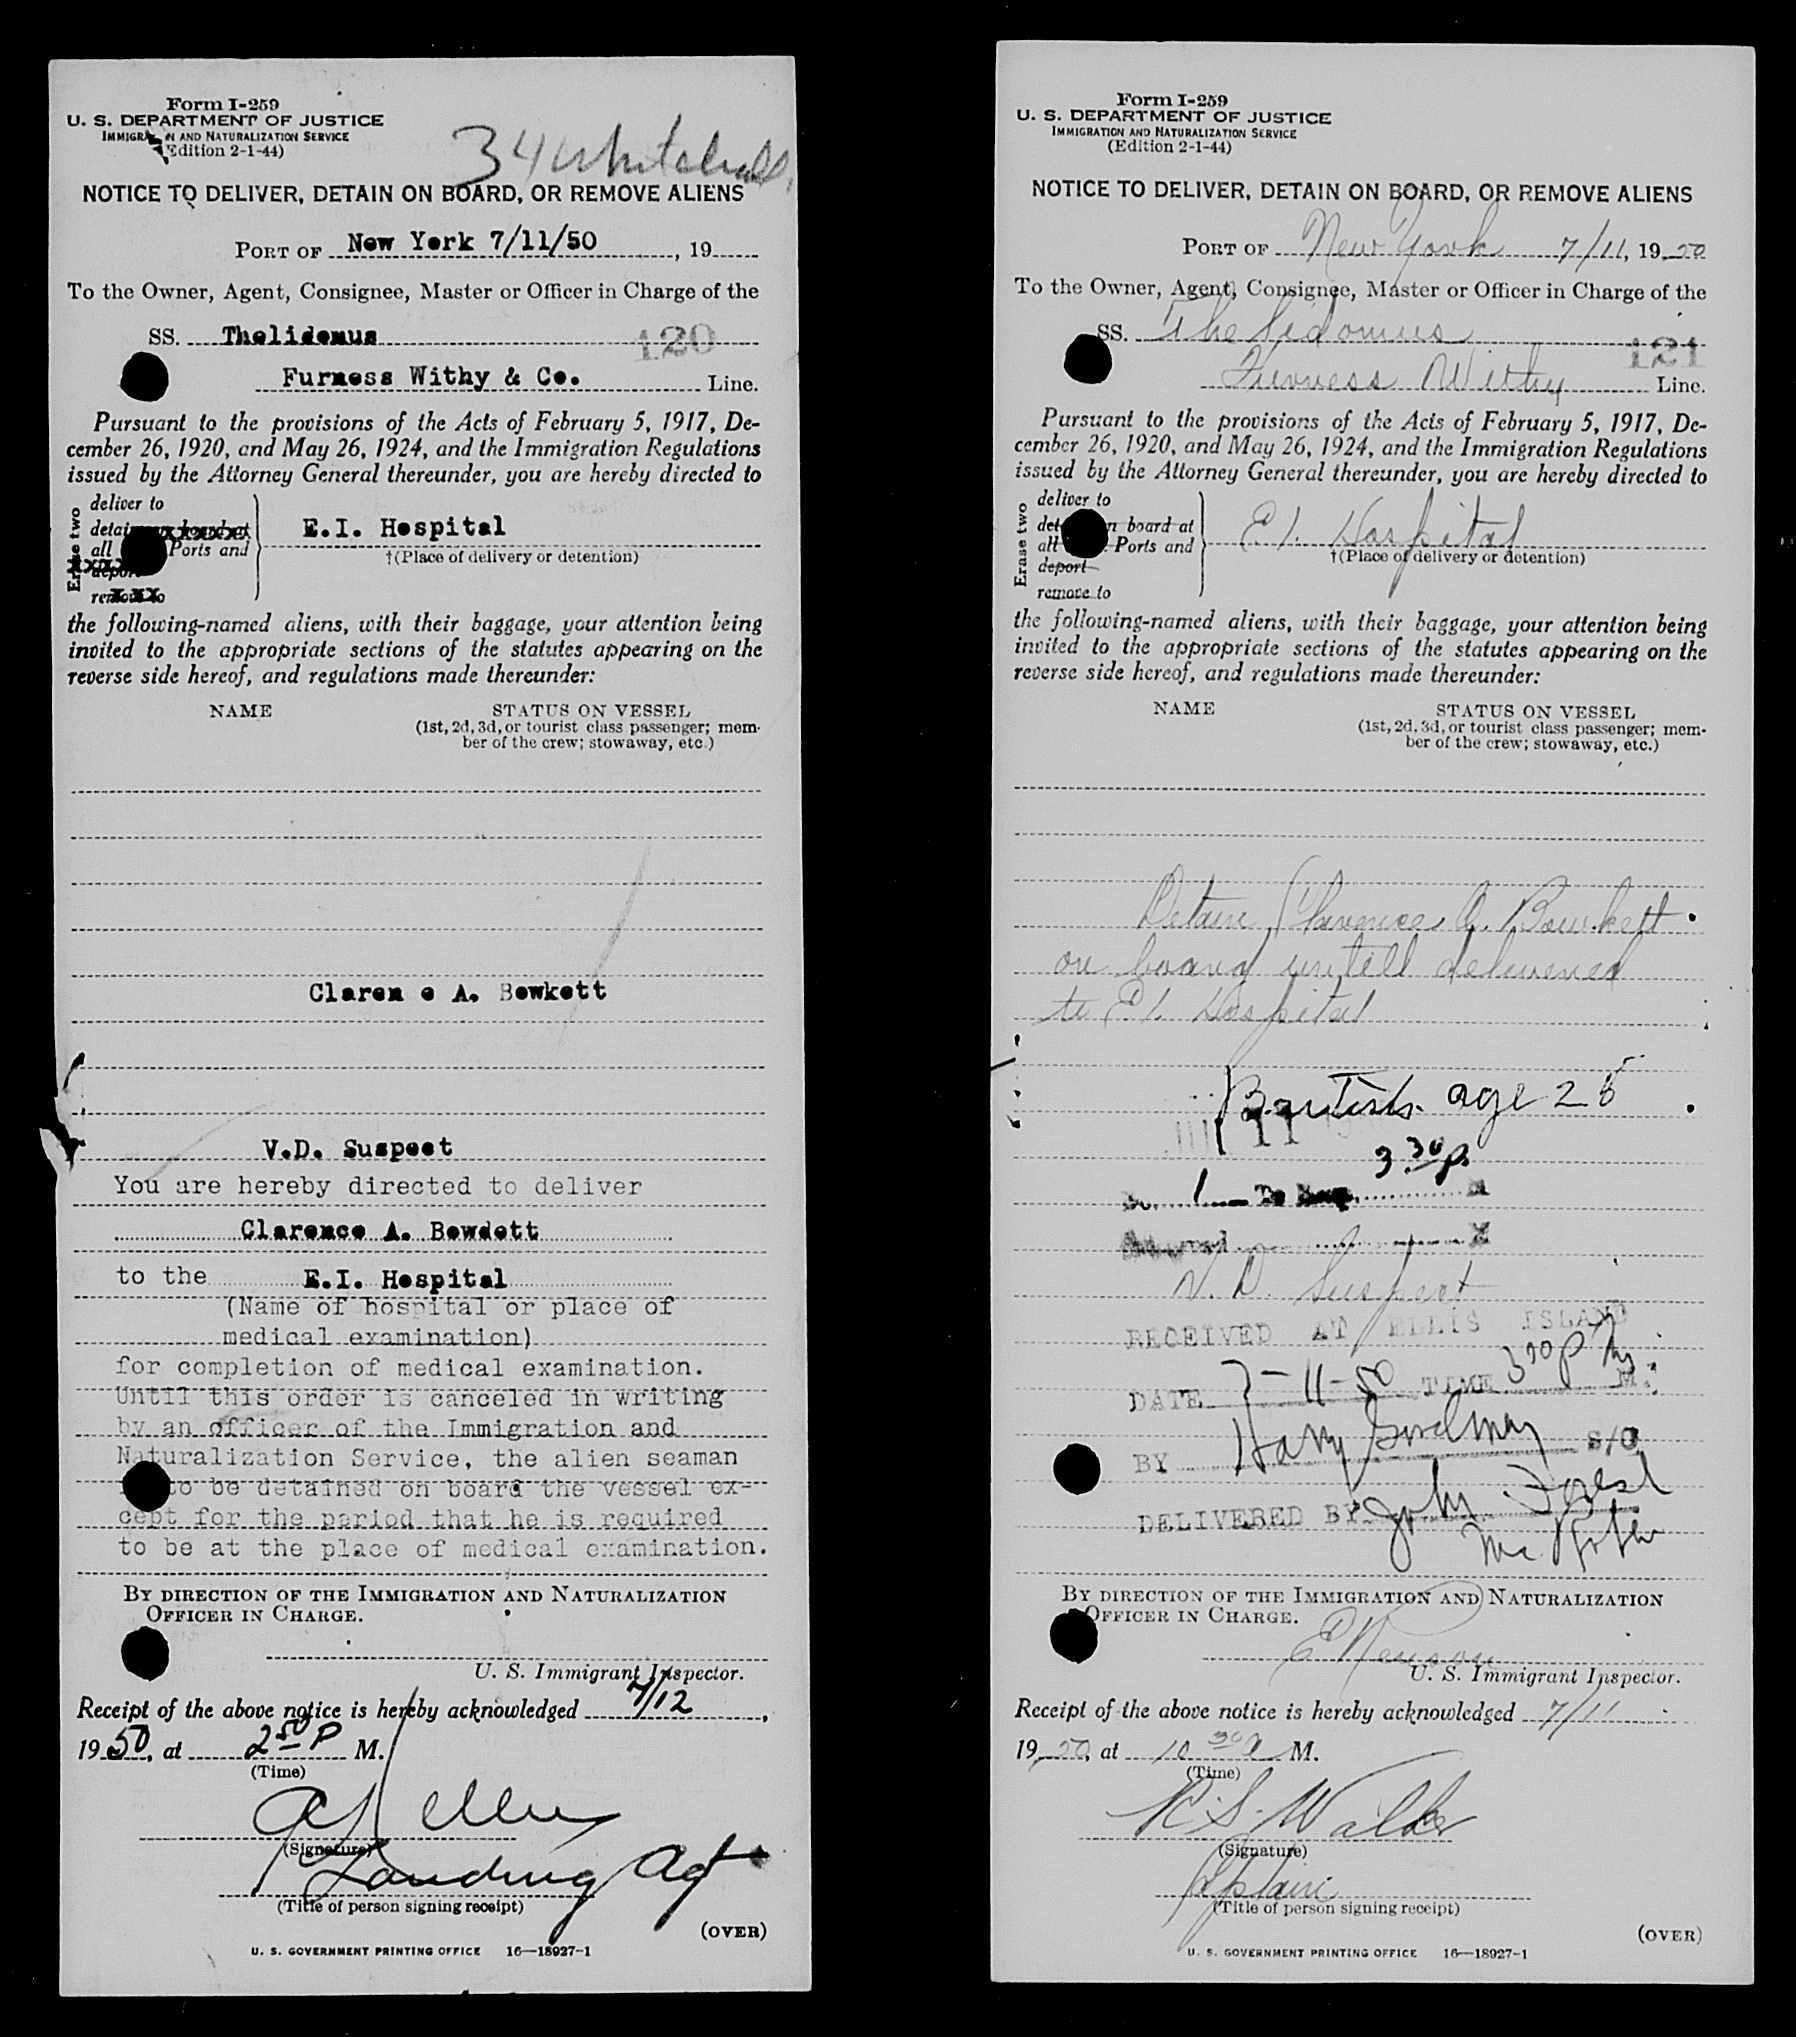 Form I-259
U. S. DEPARTMENT OF JUSTICE
IMMIGRA N AND NATURALIZATION SERVICE
(Edition 2-1-44)
34 Whitehall,
NOTICE TO DELIVER, DETAIN ON BOARD, OR REMOVE ALIENS
PORT OF New York 7/11/50, 19
To the Owner, Agent, Consignee, Master or Officer in Charge of the
SS. Thelidomus
120
Furness Withy & Co. Line.
Pursuant to the provisions of the Acts of February 5, 1917, De-
cember 26, 1920, and May 26, 1924, and the Immigration Regulations
issued by the Attorney General thereunder, you are hereby directed to
Erase two
deliver to
detain on board at
all Ports and
deport
remove to
E.I. Hospital
†(Place of delivery or detention)
the following-named aliens, with their baggage, your attention being
invited to the appropriate sections of the statutes appearing on the
reverse side hereof, and regulations made thereunder:
NAME STATUS ON VESSEL
(1st, 2d, 3d, or tourist class passenger; mem-
ber of the crew; stowaway, etc.)
Claren e A. Bowkett
V.D. Suspect
You are hereby directed to deliver
Clarence A. Bowdett
to the E.I. Hospital
(Name of hospital or place of
medical examination)
for completion of medical examination.
Until this order is canceled in writing
by an officer of the Immigration and
Naturalization Service, the alien seaman
to be detained on board the vessel ex-
cept for the period that he is required
to be at the place of medical examination.
BY DIRECTION OF THE IMMIGRATION AND NATURALIZATION
OFFICER IN CHARGE.
U. S. Immigrant Inspector.
Receipt of the above notice is hereby acknowledged 7/12,
19 50, at 2 50 P M.
(Time)
(Signature)
Landing Agt
(Title of person signing receipt)
(OVER)
U. S. GOVERNMENT PRINTING OFFICE 16—18927-1
Form I-259
U. S. DEPARTMENT OF JUSTICE
IMMIGRATION AND NATURALIZATION SERVICE
(Edition 2-1-44)
NOTICE TO DELIVER, DETAIN ON BOARD, OR REMOVE ALIENS
PORT OF New York 7/11, 19 50
To the Owner, Agent, Consignee, Master or Officer in Charge of the
SS. Thelidomus
121
Furness Withy Line.
Pursuant to the provisions of the Acts of February 5, 1917, De-
cember 26, 1920, and May 26, 1924, and the Immigration Regulations
issued by the Attorney General thereunder, you are hereby directed to
Erase two
deliver to
detain on board at
all Ports and
deport
remove to
E.I. Hospital
†(Place of delivery or detention)
the following-named aliens, with their baggage, your attention being
invited to the appropriate sections of the statutes appearing on the
reverse side hereof, and regulations made thereunder:
NAME STATUS ON VESSEL
(1st, 2d, 3d, or tourist class passenger; mem-
ber of the crew; stowaway, etc.)
Detain Clarence A. Bowkett
on board untill delivered
to E.I. Hospital
age 25
11
3 30 P.
1 To
V. D. Suspect
RECEIVED AT ELLIS ISLAND
DATE 7-11-50 TIME 3 30 P M.
BY Harry Goodman S/O
DELIVERED BY John
BY DIRECTION OF THE IMMIGRATION AND NATURALIZATION
OFFICER IN CHARGE.
U. S. Immigrant Inspector.
Receipt of the above notice is hereby acknowledged 7/11
19 50, at 10 30 A M.
(Time)
R. S. Walker
(Signature)
Captain
(Title of person signing receipt)
(OVER)
U. S. GOVERNMENT PRINTING OFFICE 16—18927-1